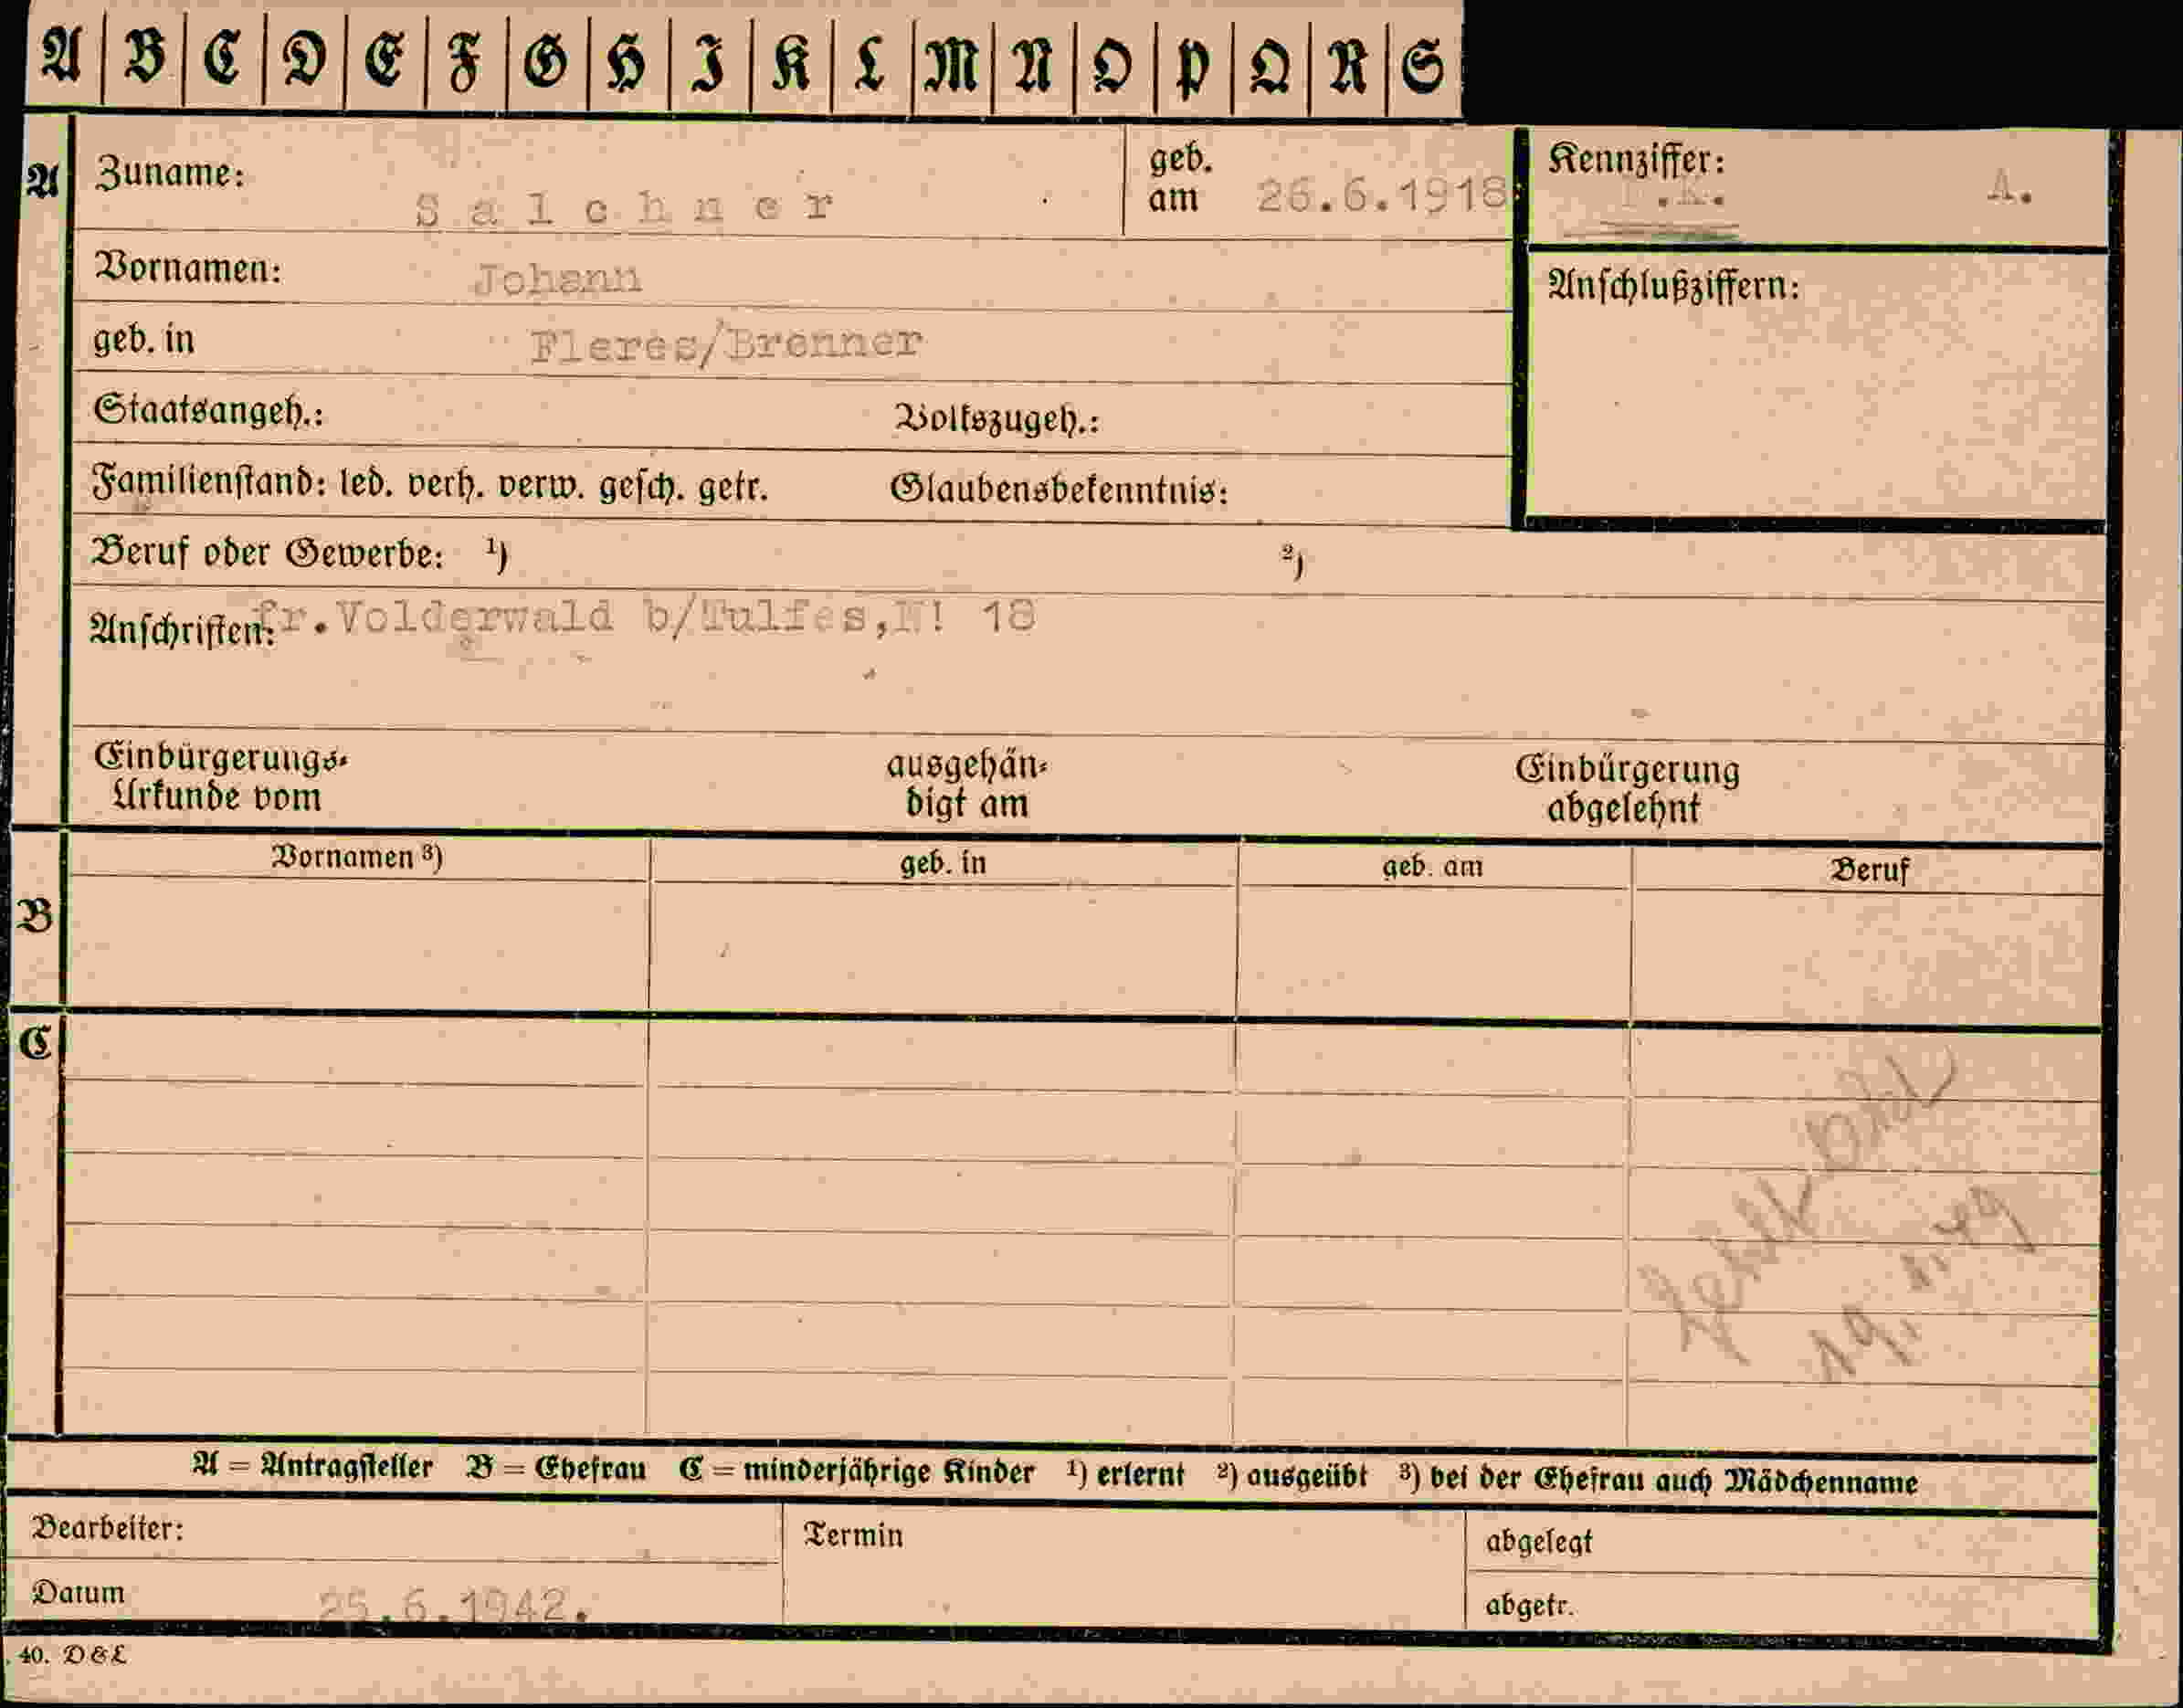 A B C D E F G H I K L M N O P Q R S
A
Zuname: Salchner
geb. am 26.6.1918
Kennziffer: A.
Vornamen: Johann
Anschlußziffern:
geb. in Fleres/Brenner
Staatsangeh.: Volkszugeh.:
Familienstand: led. verh. verw. gesch. getr. Glaubensbekenntnis:
Beruf oder Gewerbe: ¹) ²)
Anschriften: fr.Volderwald b/Tulfes, 18
Einbürgerungs-
Urkunde vom
ausgehän-
digt am
Einbürgerung
abgelehnt
B
Vornamen ³) geb. in geb. am Beruf
C
19. 1. 49
A = Antragsteller B = Ehefrau C = minderjährige Kinder ¹) erlernt ²) ausgeübt ³) bei der Ehefrau auch Mädchenname
Bearbeiter: Termin abgelegt
Datum 25.6.1942. abgetr.
40. D & L